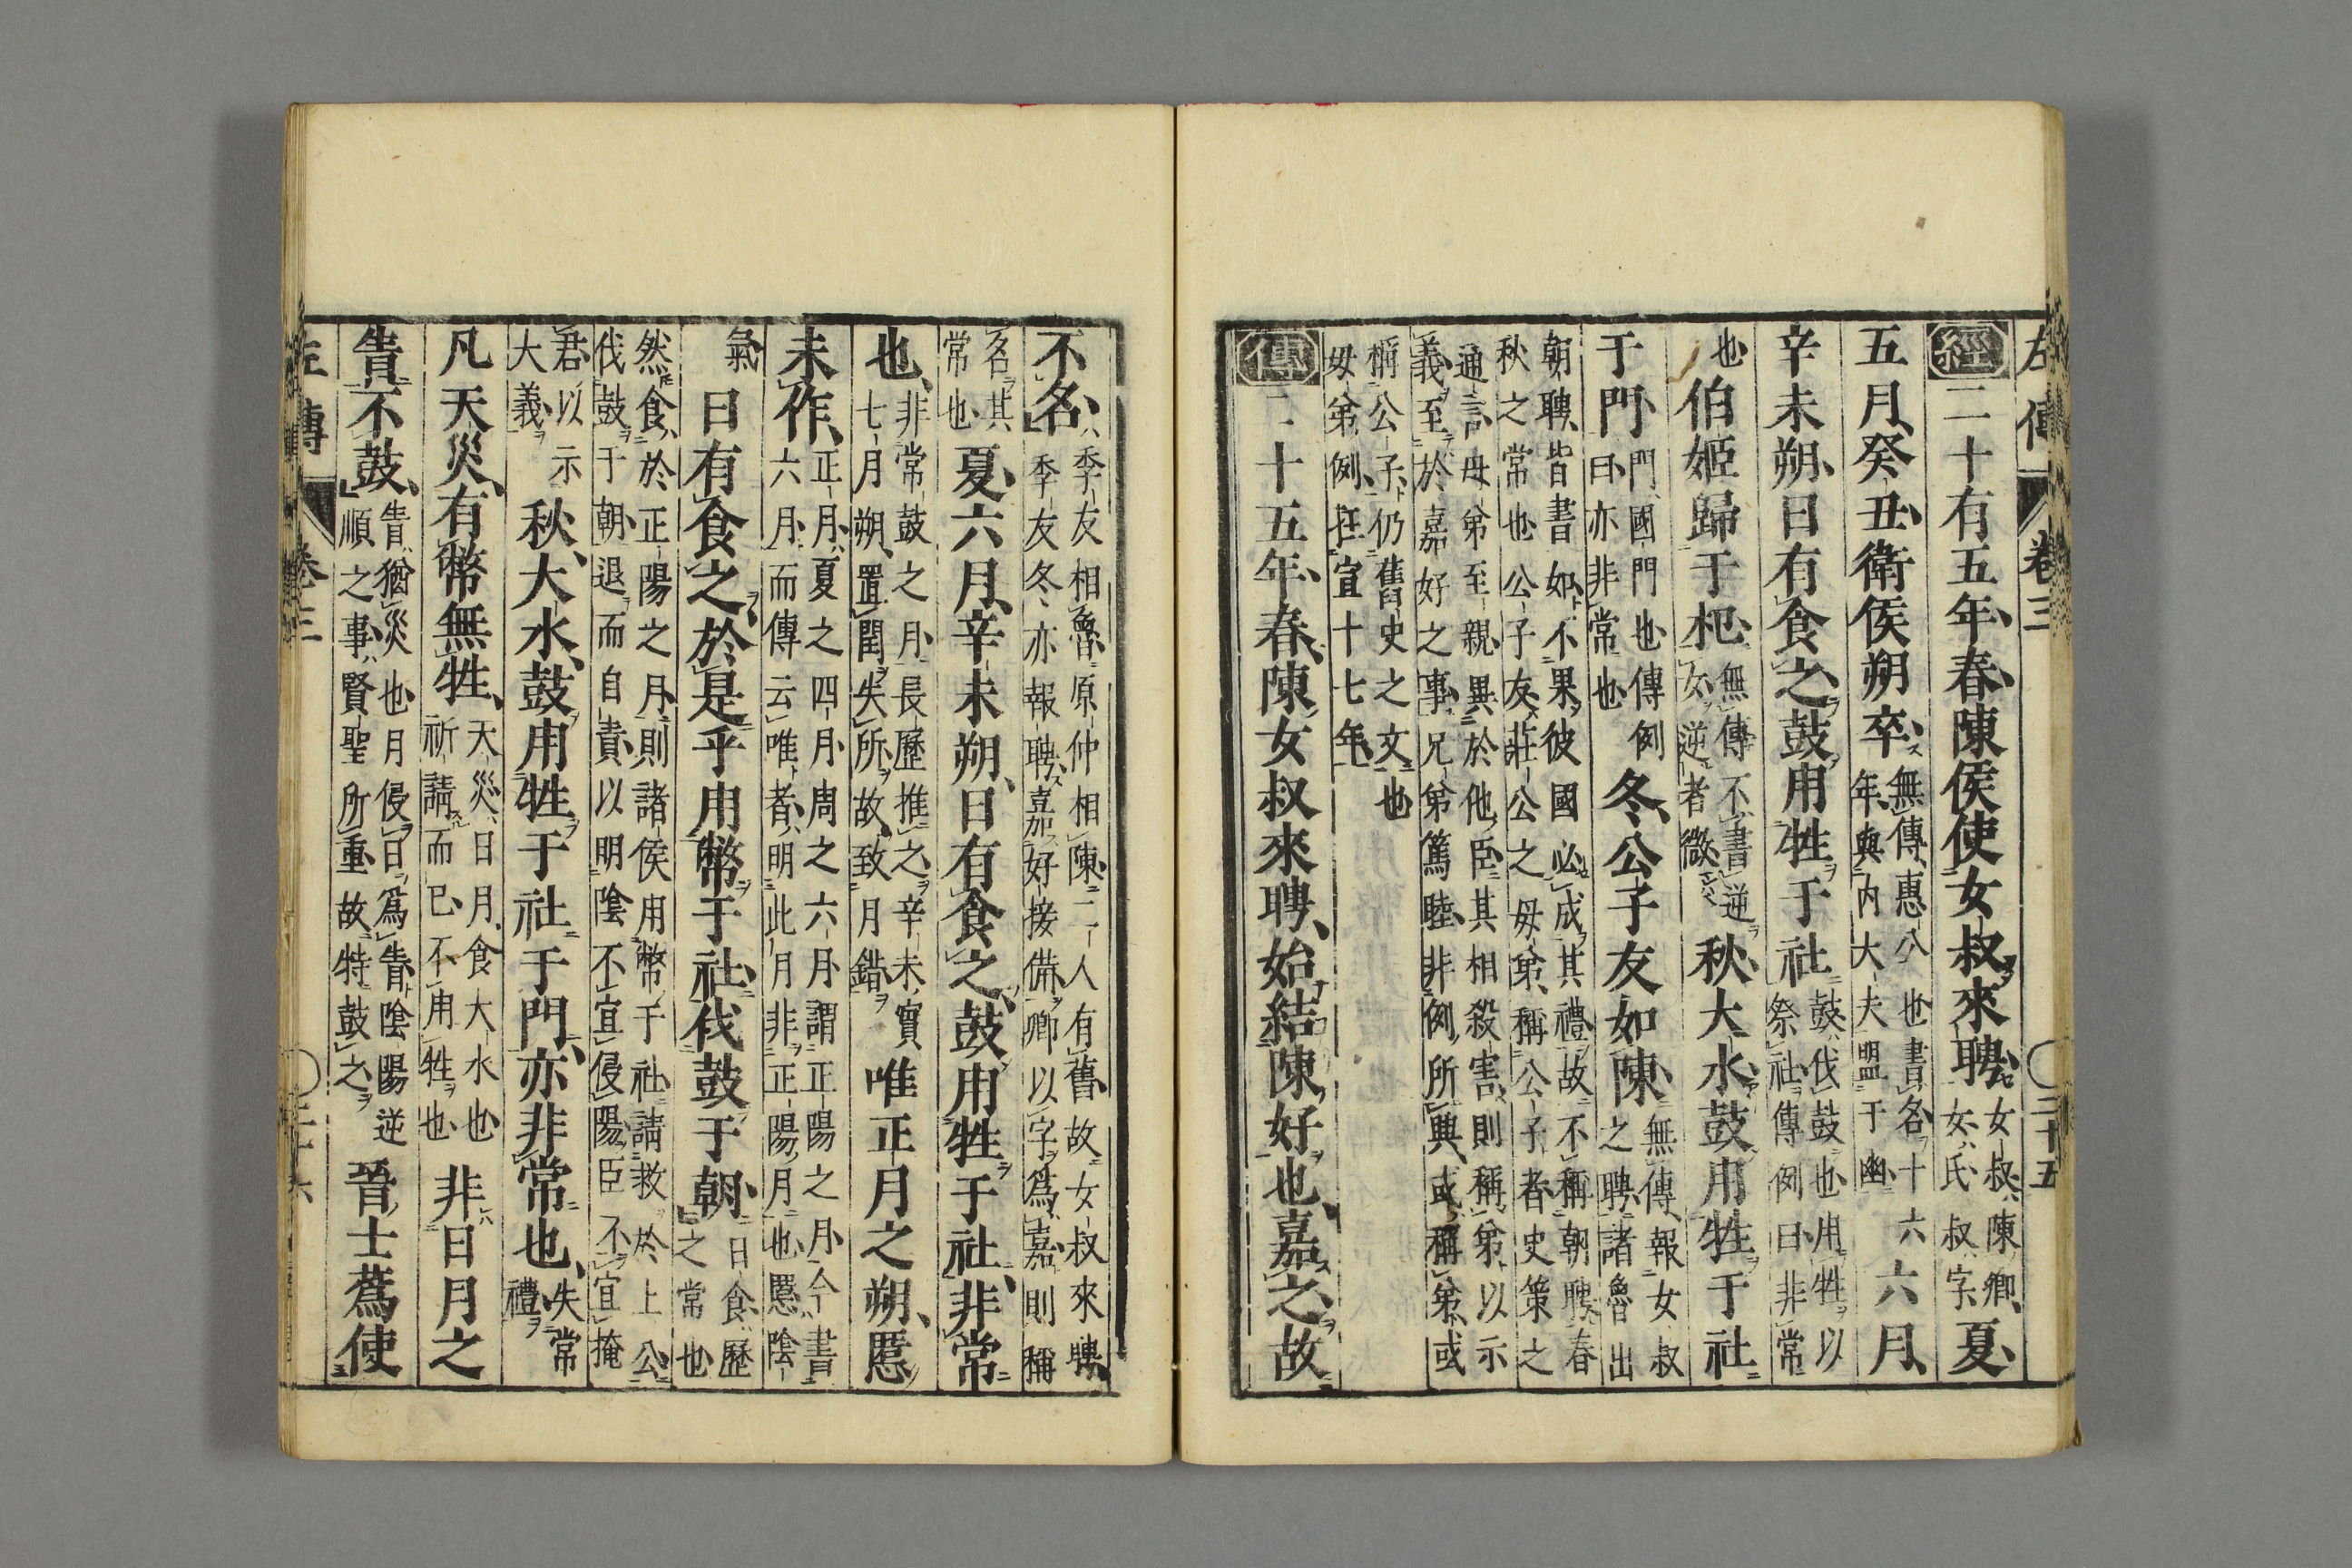 左傳 卷三 二十五
經 二十有五年春陳侯使女叔來聘 女叔陳卿女氏叔字 夏
五月癸丑衛侯朔卒 無傳惠公也書名十六年與內大夫盟于幽 六月
辛未朔日有食之鼓用牲于社 鼓伐鼓也用牲以祭社傳例曰非常
也 伯姬歸于杞 無傳不書逆女逆者微 秋大水鼓用牲于社
于門 門國門也傳例曰亦非常也 冬公子友如陳 無傳報女叔之聘諸魯出
朝聘皆書如不果彼國必成其禮故不稱朝聘春
秋之常也公子友莊公之母弟稱公子者史策之
通言母弟至親異於他臣其相殺害則稱弟以示
義至於嘉好之事兄弟篤睦非例所興或稱弟或
稱公子仍舊史之文也
母弟例在宣十七年
傳 二十五年春陳女叔來聘始結陳好也嘉之故
不名 季友相魯原仲相陳二人有舊故女叔來聘季友冬亦報聘嘉好接備卿以字爲嘉則稱
名其常也 夏六月辛未朔日有食之鼓用牲于社非常
也 非常鼓之月長歷推之辛未實七月朔置閏失所故致月錯 唯正月之朔慝
未作 正月夏之四月周之六月謂正陽之月今書六月而傳云唯者明此月非正陽月也慝陰
氣 日有食之於是乎用幣于社伐鼓于朝 日食歷之常也
然食於正陽之月則諸侯用幣于社請救於上公
伐鼓于朝退而自責以明陰不宜侵陽臣不宜掩
君以示大義 秋大水鼓用牲于社于門亦非常也 失常禮
凡天災有幣無牲 天災日月食大水也祈請而已不用牲也 非日月之
眚不鼓 眚猶災也月侵日爲眚陰陽逆順之事賢聖所重故特鼓之 晉士蒍使
左傳 卷三 二十六